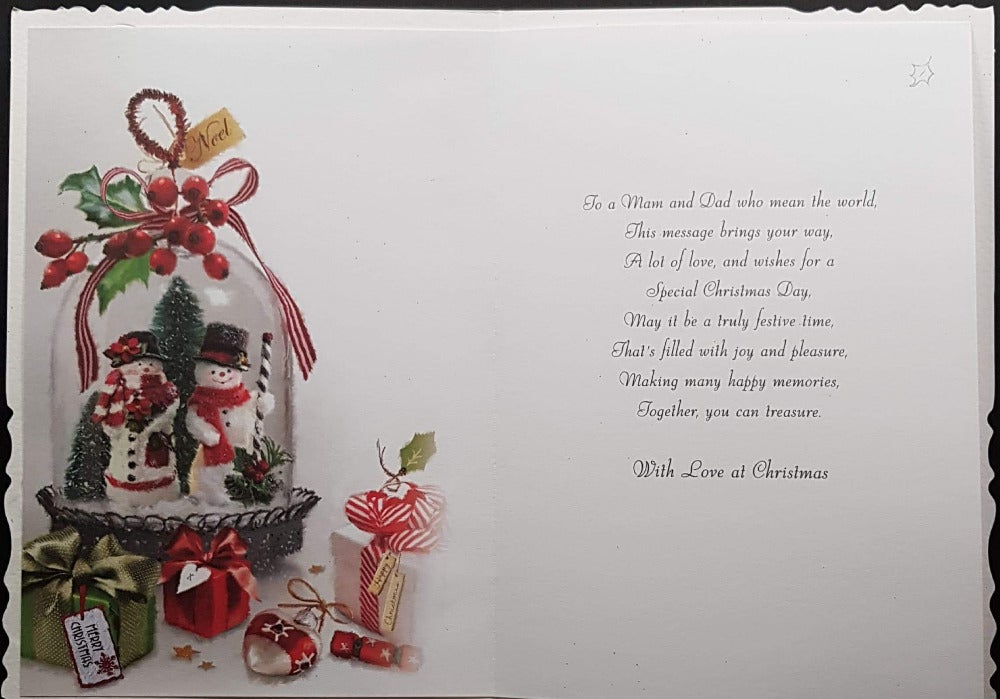 Noel
MERRY
CHRISTMAS
Happy
Christmas
To a Mam and Dad who mean the world,
This message brings your way,
A lot of love, and wishes for a
Special Christmas Day,
May it be a truly festive time,
That's filled with joy and pleasure,
Making many happy memories,
Together, you can treasure.
With Love at Christmas